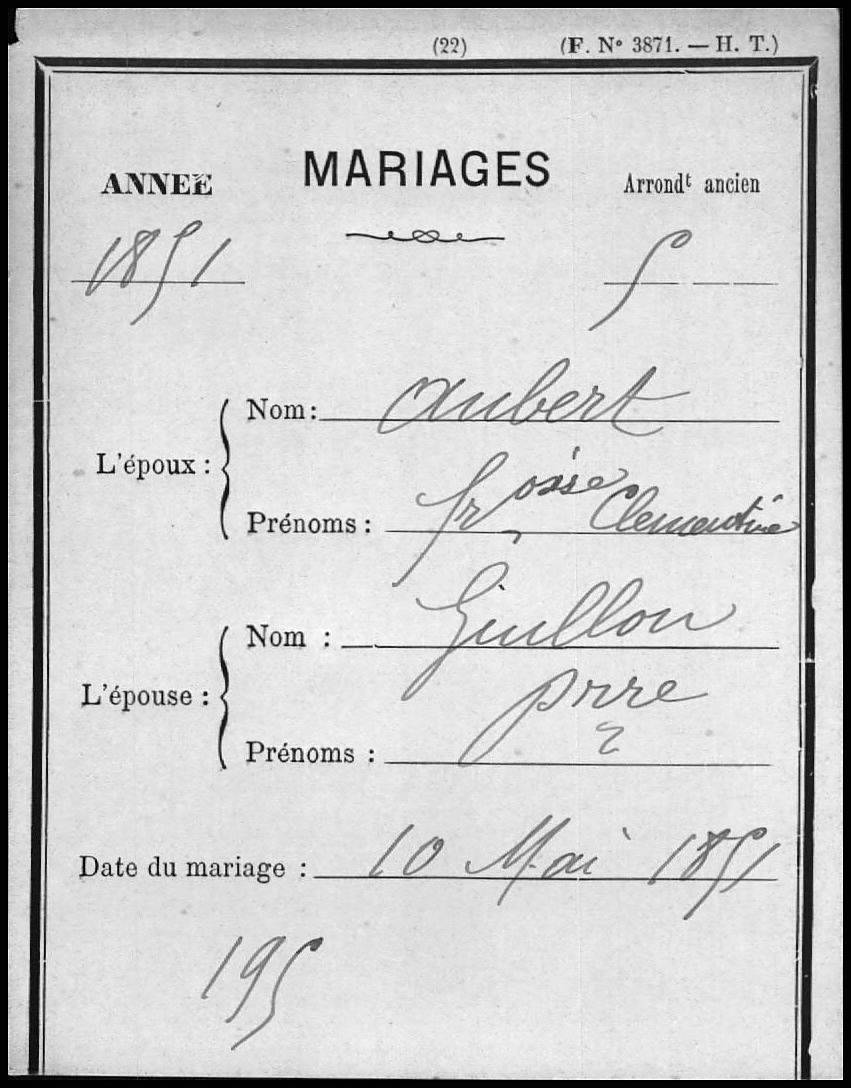 (22) (F. Nº 3871. — H. T.)
ANNEÉ MARIAGES Arrond^t ancien
1851 5
L'époux : Nom: Aubert
Prénoms : Clementine
L'épouse : Nom : Guillon
Prénoms : prre
Date du mariage : 10 Mai 1851
195